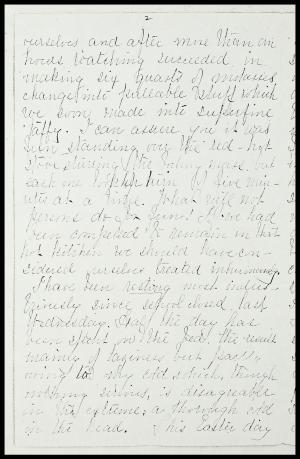 2
ourselves and after more than an
hours watching succeeded in
making six quarts of molasses
change into pullable stuff which
we soon made into superfine
taffy. I can assure you it was
fun standing over the red-hot
stove stirring the boiling mass but
each one took her turn of five min-
utes at a time. What will not
persons do for fun! If we had
been compelled to remain in that
hot kitchen we should have con-
sidered ourselves treated inhumanly.
I have been resting most indus-
triously since school closed last
Wednesday. Half the day has
been spent on the bed, the result
mainly of laziness but partly
owing to my cold which, though
nothing serious, is disagreeable
in the extreme; a thorough cold
in the head. This Easter day